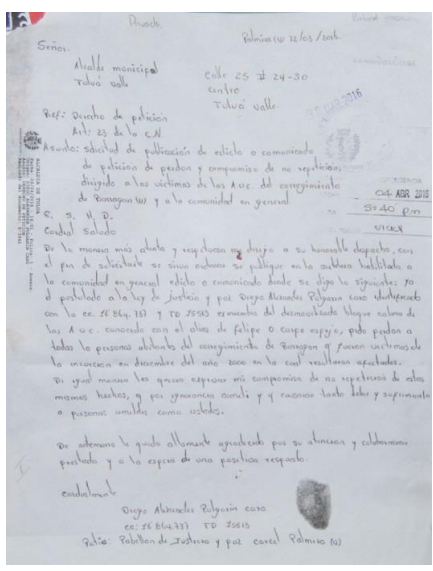 Palmira (v) 22/03/2016.
Señor.
Alcalde municipal
Tuluá valle
Calle 25 # 24-30
centro
Tuluá valle.
Ref: Derecho de petición
Art: 23 de la C.N
Asunto: solicitud de publicación de edicto o comunicado
de petición de perdon y compromiso de no repetición
dirigido a las victimas de las A.U.C. del corregimiento
de Barragan (v) y a la comunidad en general
04 ABR 2016
5:40 pm
E. S. M. D.
Cordial Saludo
De la manera más atenta y respetuosa me dirijo a su honorable despacho, con
el fin de solicitarle se sirva ordenar se publique en la cartelera habilitada a
la comunidad en general edicto o comunicado donde se diga lo siguiente; yo
el postulado a la ley de justicia y paz Diego Alexander Pulgarin caro identificado
con la cc. 16'864.737 y TD 15515 exmiembro del desmovilizado bloque calima de
las A.U.C. conocido con el alias de Felipe o carpe, pido perdon a
todas la personas del corregimiento de Barragan q fueron victimas de
la incursion en diciembre del año 2000 en la cual resultaron afectados.
De igual manera les quiero expresar mi compromiso de no repetirse de estos
mismos hechos, q por ignorancia cometi y q causaron tanto dolor y sufrimiento
a personas umildes como ustedes.
De antemano le quedo altamente agradecido por su atencion y colaboracion
prestada y a la espera de una positiva respuesta
cordialmente
Diego Alexander Pulgarin caro
cc: 16'864.737 TD 15515
Patio: Pabellon de Justicia y paz carcel Palmira (v)